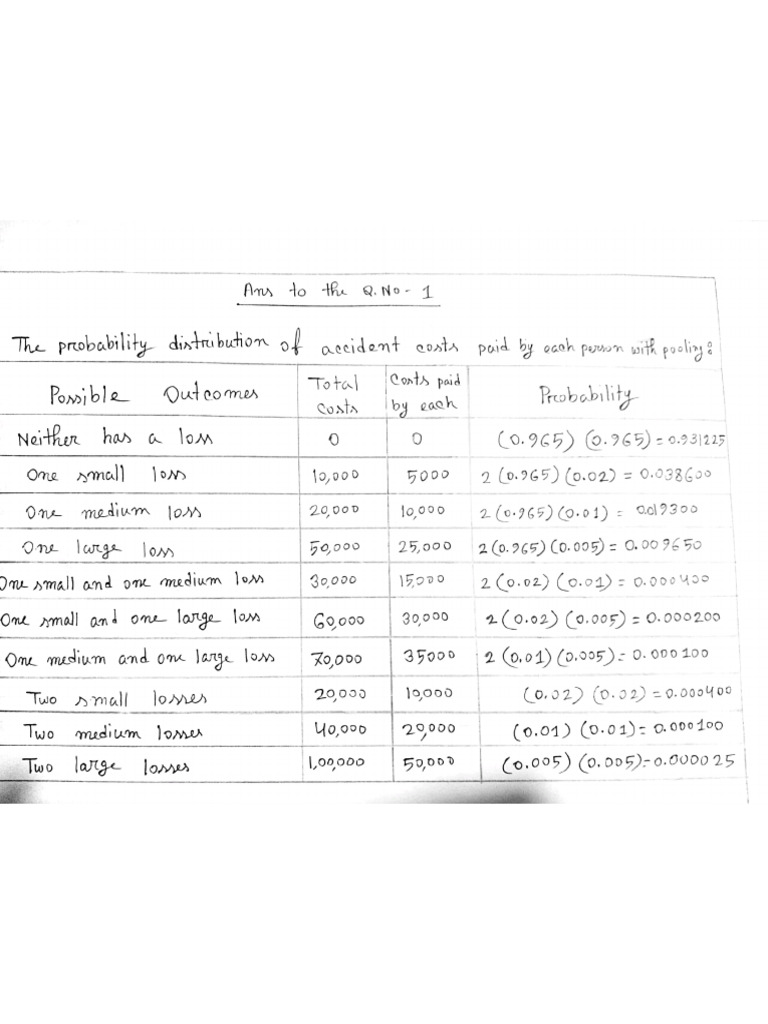 Ans to the Q.No- 1
The probability distribution of accident costs paid by each person with pooling:
Possible Outcomes Total costs Costs paid by each Probability
Neither has a loss 0 0 (0.965) (0.965) = 0.931225
One small loss 10,000 5000 2 (0.965) (0.02) = 0.038600
One medium loss 20,000 10,000 2 (0.965) (0.01) = 0.019300
One large loss 50,000 25,000 2 (0.965) (0.005) = 0.009650
One small and one medium loss 30,000 15,000 2 (0.02) (0.01) = 0.000400
One small and one large loss 60,000 30,000 2 (0.02) (0.005) = 0.000200
One medium and one large loss 70,000 35000 2 (0.01) (0.005) = 0.000100
Two small losses 20,000 10,000 (0.02) (0.02) = 0.000400
Two medium losses 40,000 20,000 (0.01) (0.01) = 0.000100
Two large losses 1,00,000 50,000 (0.005) (0.005) = 0.000025